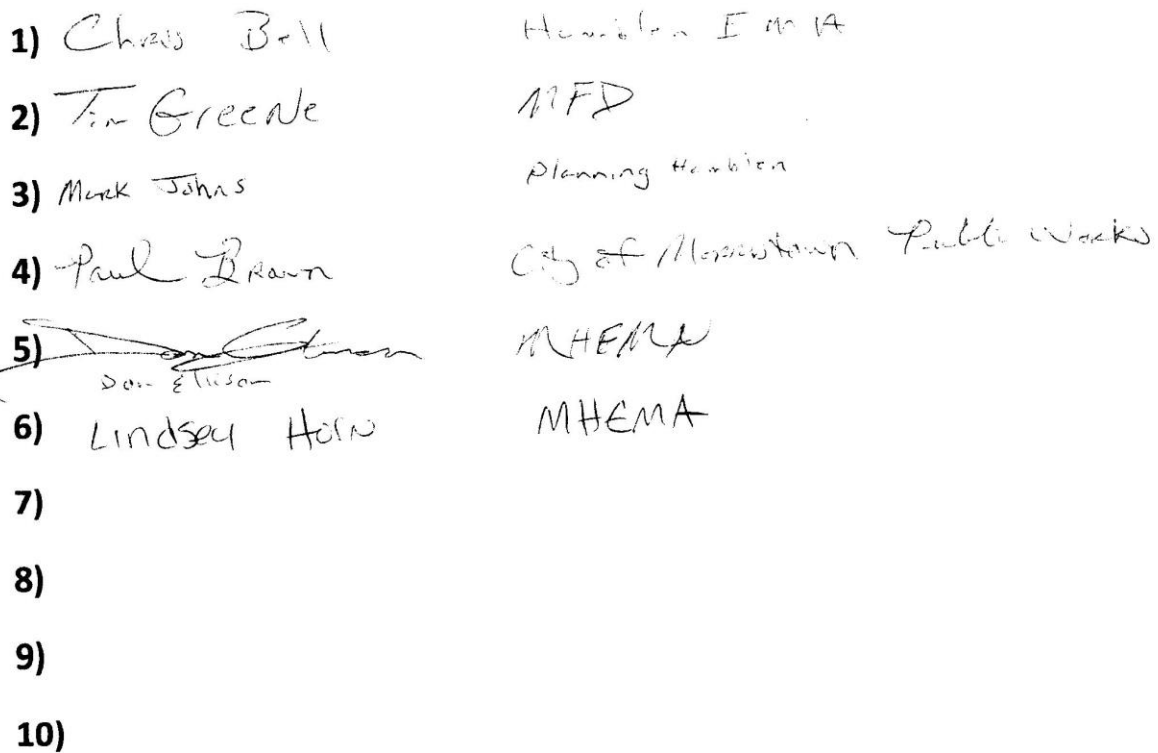 1) Chris Bell Hamblen EMA
2) Tim Greene MFD
3) Mark Johns Planning Hamblen
4) Paul Brown City of Morristown Public Works
5) MHEMA
Don Ellison
6) Lindsey Horn MHEMA
7)
8)
9)
10)